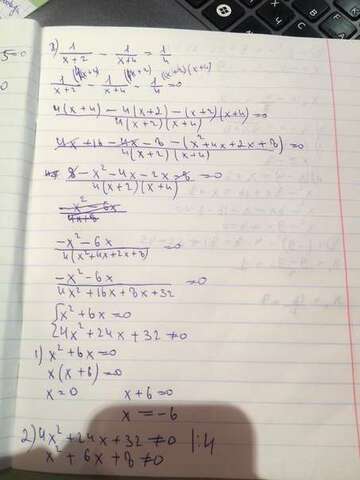 5=0
0
2) 1/(x+2) - 1/(x+4) = 1/4
1/(x+2) - 1/(x+4) - 1/4 = 0
4(x+4) - 4(x+2) - (x+2)(x+4) / 4(x+2)(x+4) = 0
4x + 16 - 4x - 8 - (x² + 4x + 2x + 8) / 4(x+2)(x+4) = 0
8 - x² - 4x - 2x - 8 / 4(x+2)(x+4) = 0
-x² - 6x / 4(x² + 4x + 2x + 8) = 0
-x² - 6x / 4x² + 16x + 8x + 32 = 0
{ x² + 6x = 0
{ 4x² + 24x + 32 ≠ 0
1) x² + 6x = 0
x(x + 6) = 0
x = 0 x + 6 = 0
x = -6
2) 4x² + 24x + 32 ≠ 0 |:4
x² + 6x + 8 ≠ 0